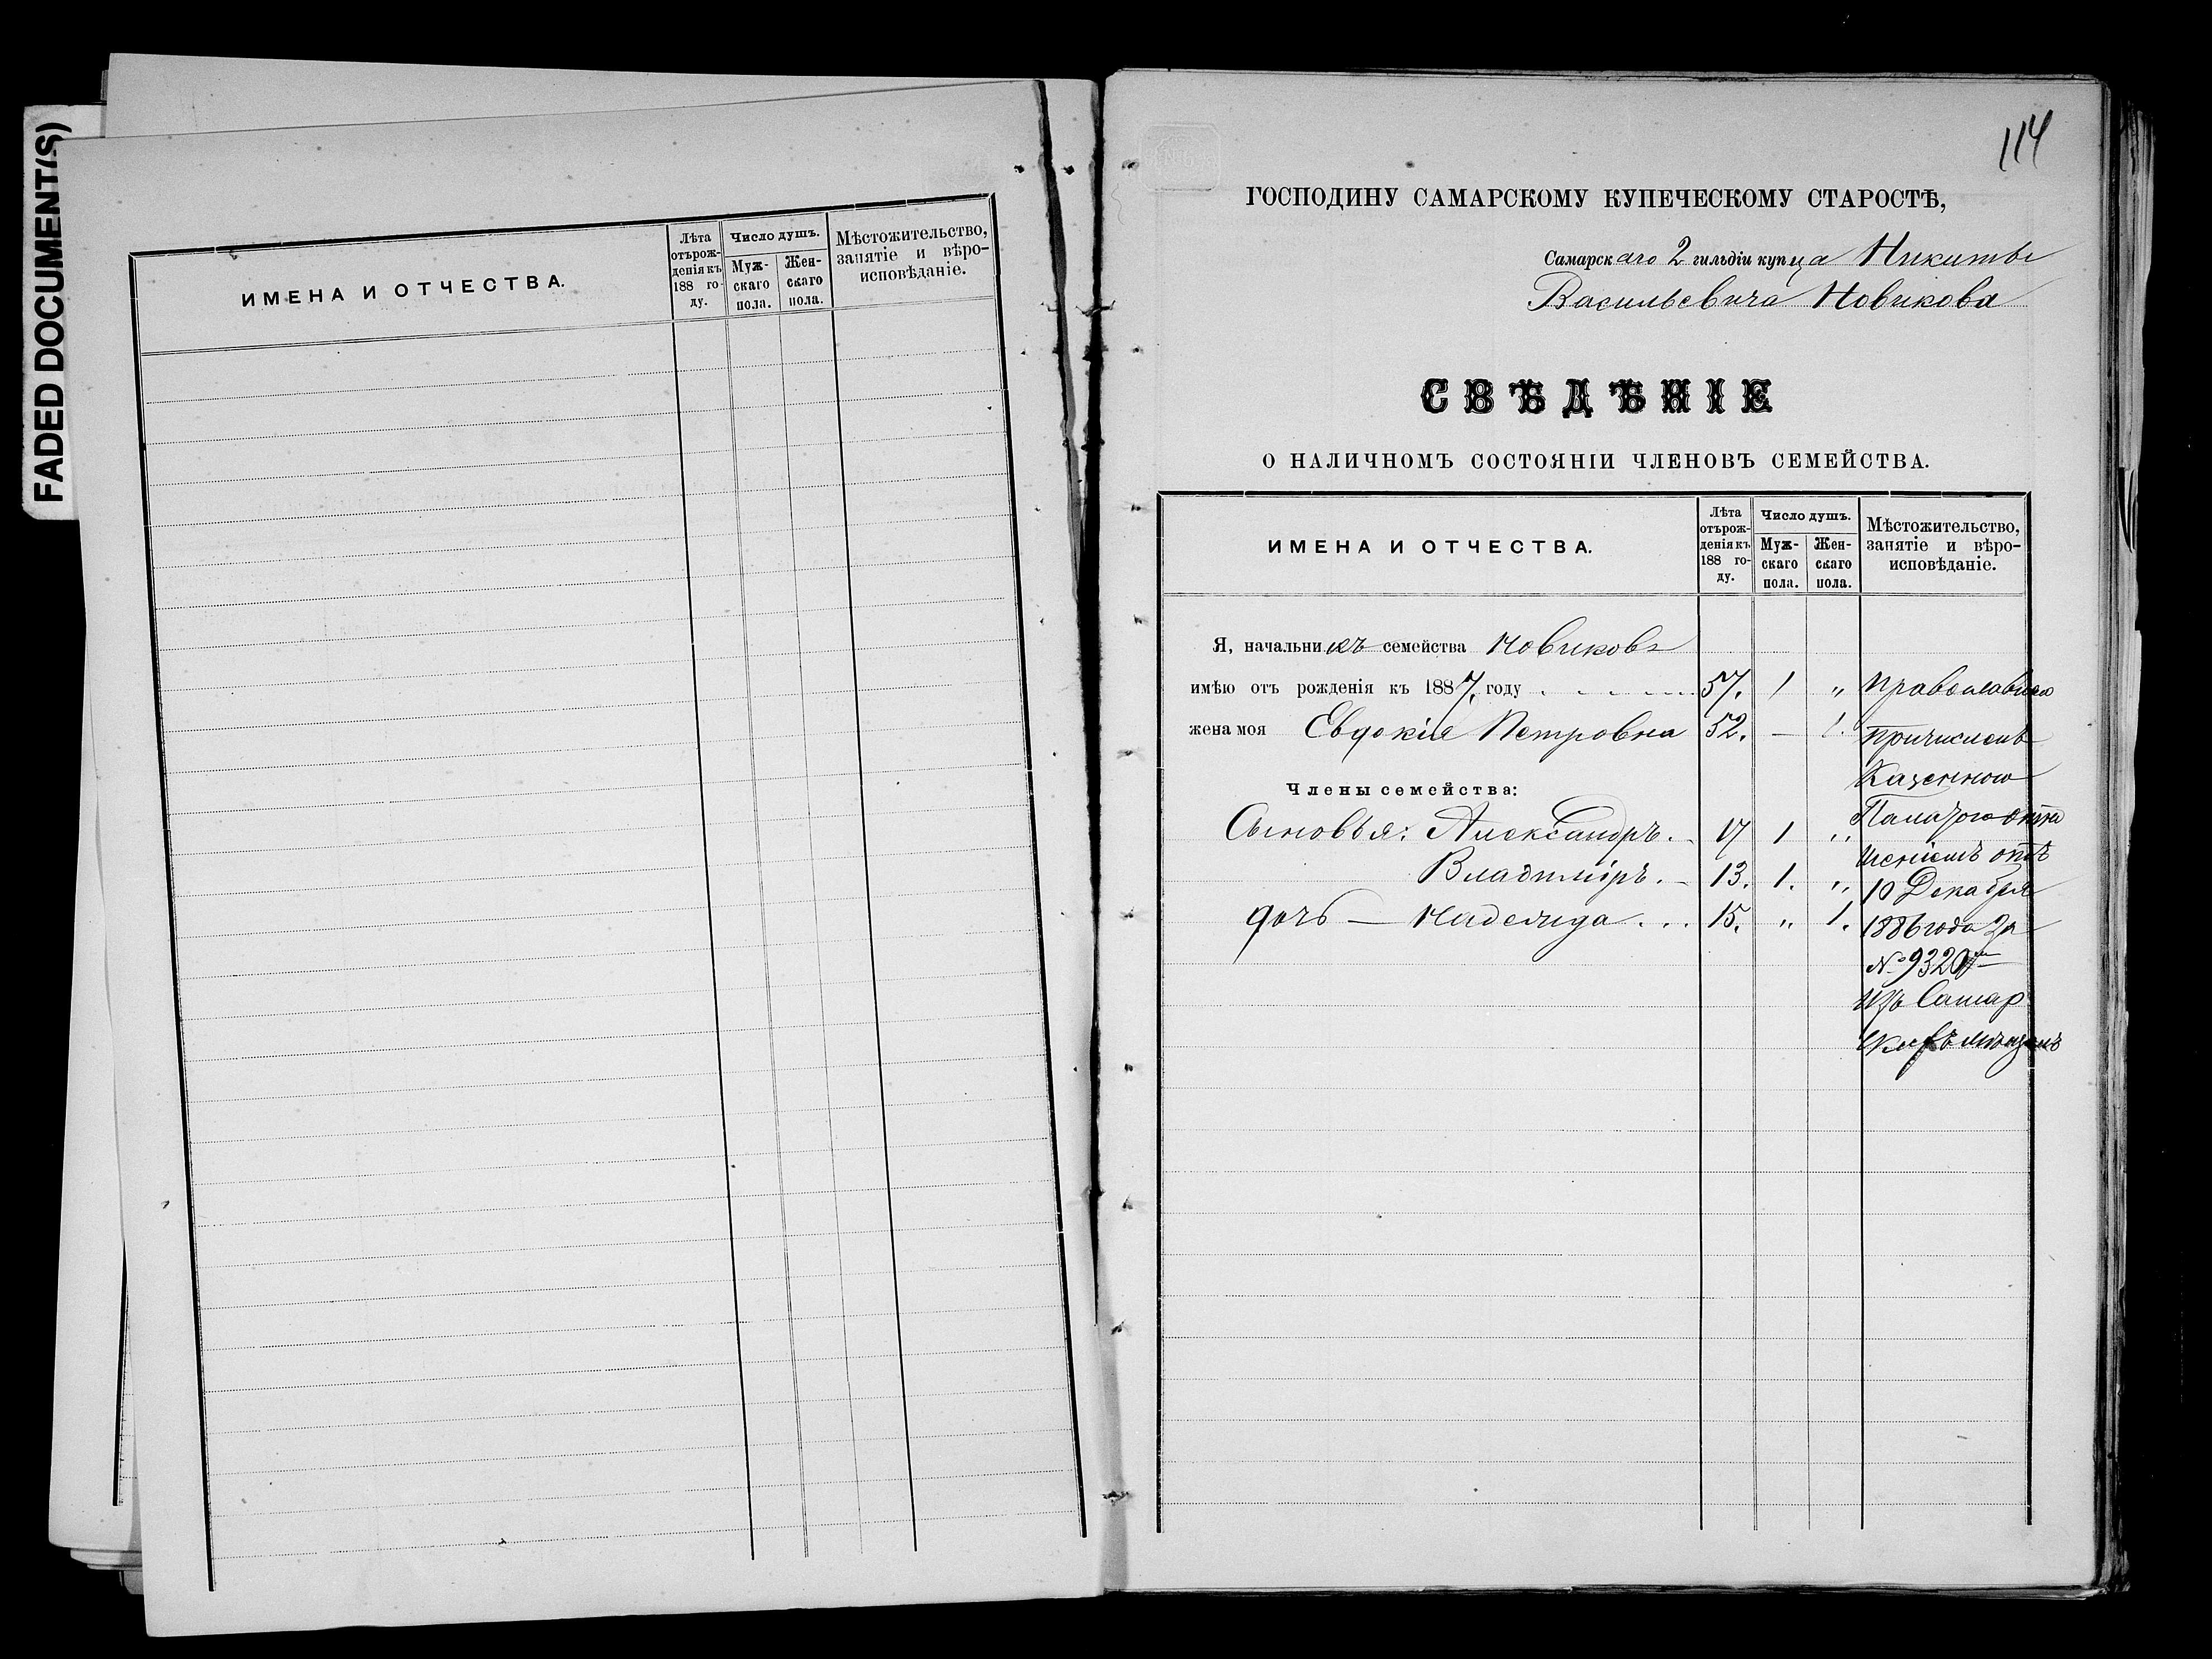 FADED DOCUMENT(S)
ИМЕНА И ОТЧЕСТВА.
Лѣта отърожденія къ 188 году.
Число душъ.
Мужскаго пола.
Женскаго пола.
Мѣстожительство, занятіе и вѣроисповѣданіе.
114
ГОСПОДИНУ САМАРСКОМУ КУПЕЧЕСКОМУ СТАРОСТѢ,
Самарскаго 2 гильдіи купца Никиты
Васильевича Новикова
СВѢДѢНІЕ
О НАЛИЧНОМЪ СОСТОЯНІИ ЧЛЕНОВЪ СЕМЕЙСТВА.
ИМЕНА И ОТЧЕСТВА.
Лѣта
отърож-
денія къ
188 го-
ду.
Число душъ.
Муж-
скаго
пола.
Жен-
скаго
пола.
Мѣстожительство,
занятіе и вѣро-
исповѣданіе.
Я, начальникъ семейства Новиковъ
имѣю отъ рожденія къ 1887 году . . . . . 57. 1 „ Православнаго
жена моя Евдокія Петровна 52. — 1. Причисленъ
Казенною
Члены семейства:
Палатою
Сыновья: Александръ. 17 1 „
Владиміръ. 13. 1. „ 10 Декабря
дочь — Надежда . . . 15. „ 1. 1886 года за
№ 9320
Изъ Самар
скихъ мѣщанъ